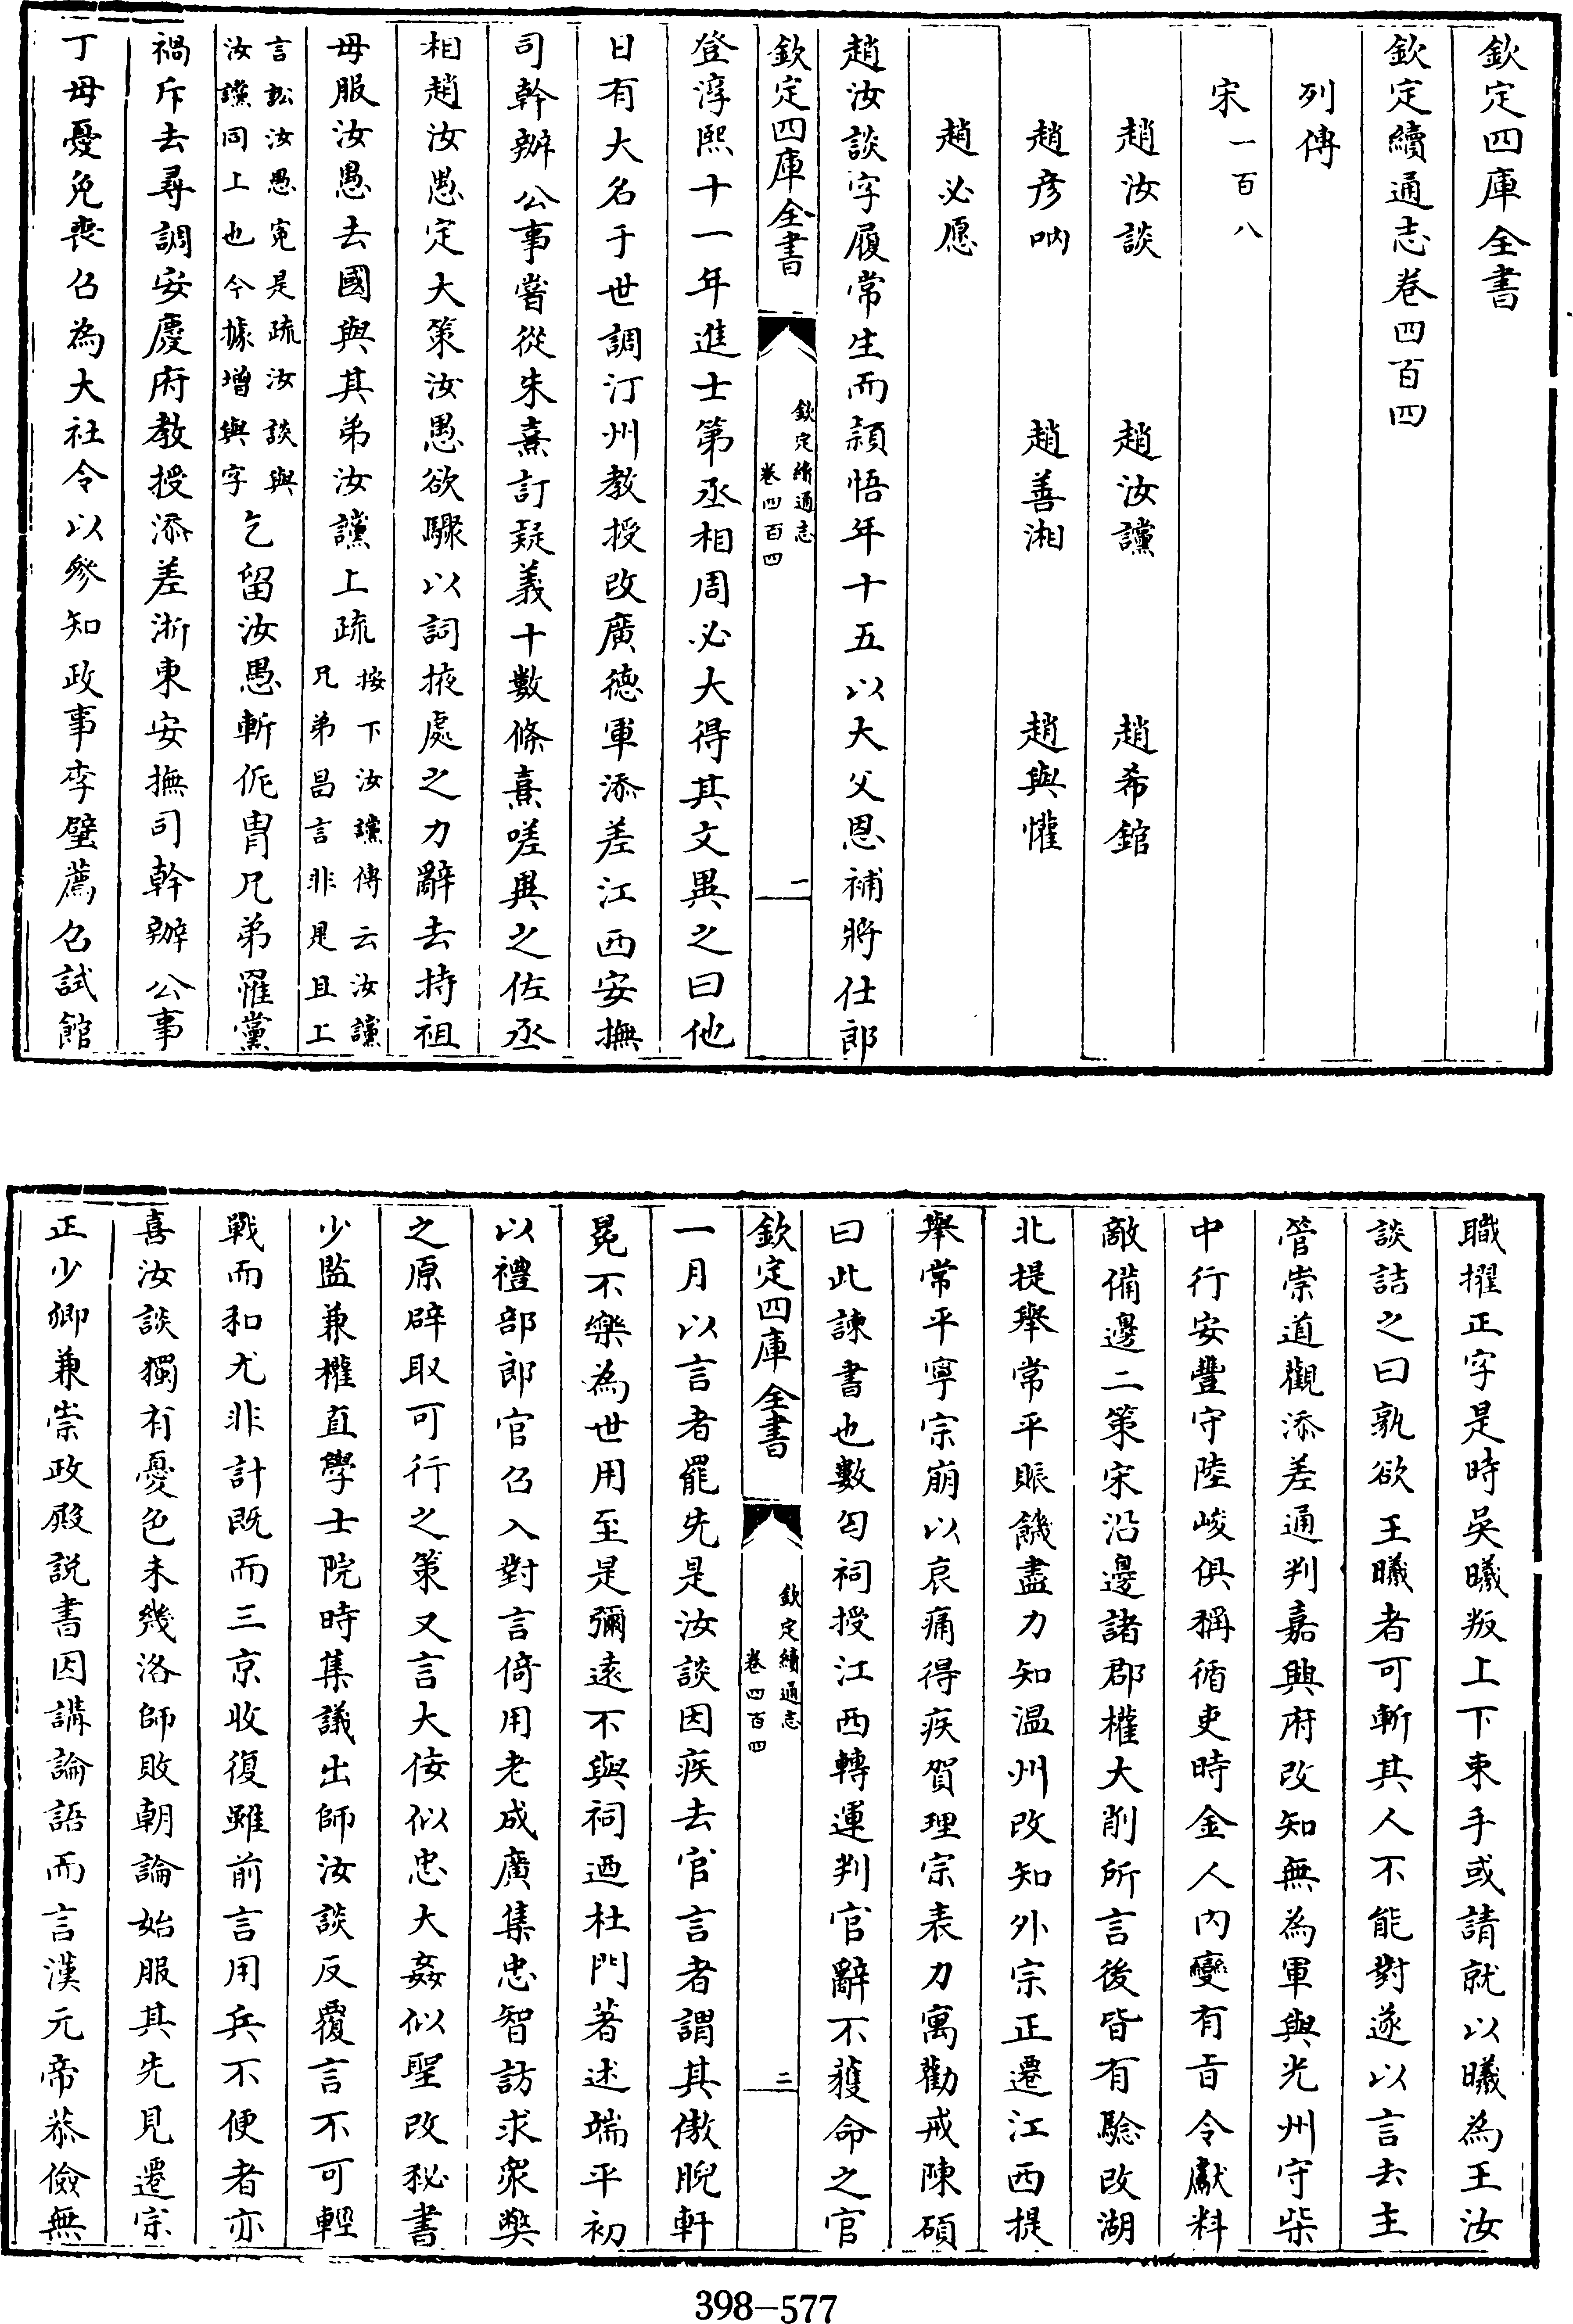 欽定四庫全書
欽定續通志卷四百四
列傳
宋一百八
趙汝談　趙汝讜　趙希錧
趙彥吶　趙善湘　趙與懽
趙必愿
趙汝談字履常生而頴悟年十五以大父恩補將仕郎
欽定四庫全書
欽定續通志
卷四百四
一
登淳熙十一年進士第丞相周必大得其文異之曰他
日有大名于世調汀州教授改廣德軍添差江西安撫
司幹辦公事嘗從朱熹訂疑義十數條熹嗟異之佐丞
相趙汝愚定大策汝愚欲驟以詞掖處之力辭去持祖
母服汝愚去國與其弟汝讜上疏
按下汝讜傳云汝讜
兄弟昌言非是且上
言訟汝愚寃是疏汝談與
汝讜同上也今據增與字
乞留汝愚斬侂胄兄弟罹黨
禍斥去尋調安慶府教授添差浙東安撫司幹辦公事
丁母憂免喪召為大社令以參知政事李壁薦召試館
職擢正字是時吳曦叛上下束手或請就以曦為王汝
談詰之曰孰欲王曦者可斬其人不能對遂以言去主
管崇道觀添差通判嘉興府改知無為軍與光州守柴
中行安豐守陸峻俱稱循吏時金人內變有旨令獻料
敵備邊二策宋沿邊諸郡權大削所言後皆有驗改湖
北提舉常平賬饑盡力知温州改知外宗正遷江西提
舉常平寧宗崩以哀痛得疾賀理宗表力寓勸戒陳碩
曰此諫書也數匄祠授江西轉運判官辭不獲命之官
欽定四庫全書
欽定續通志
卷四百四
二
一月以言者罷先是汝談因疾去官言者謂其傲睨軒
冕不樂為世用至是彌遠不與祠迺杜門著述端平初
以禮部郎官召入對言倚用老成廣集忠智訪求衆弊
之原辟取可行之策又言大佞似忠大姦似聖改秘書
少監兼權直學士院時集議出師汝談反覆言不可輕
戰而和尤非計既而三京收復雖前言用兵不便者亦
喜汝談獨有憂色未幾洛師敗朝論始服其先見遷宗
正少卿兼崇政殿説書因講論語而言漢元帝恭儉無
398-577